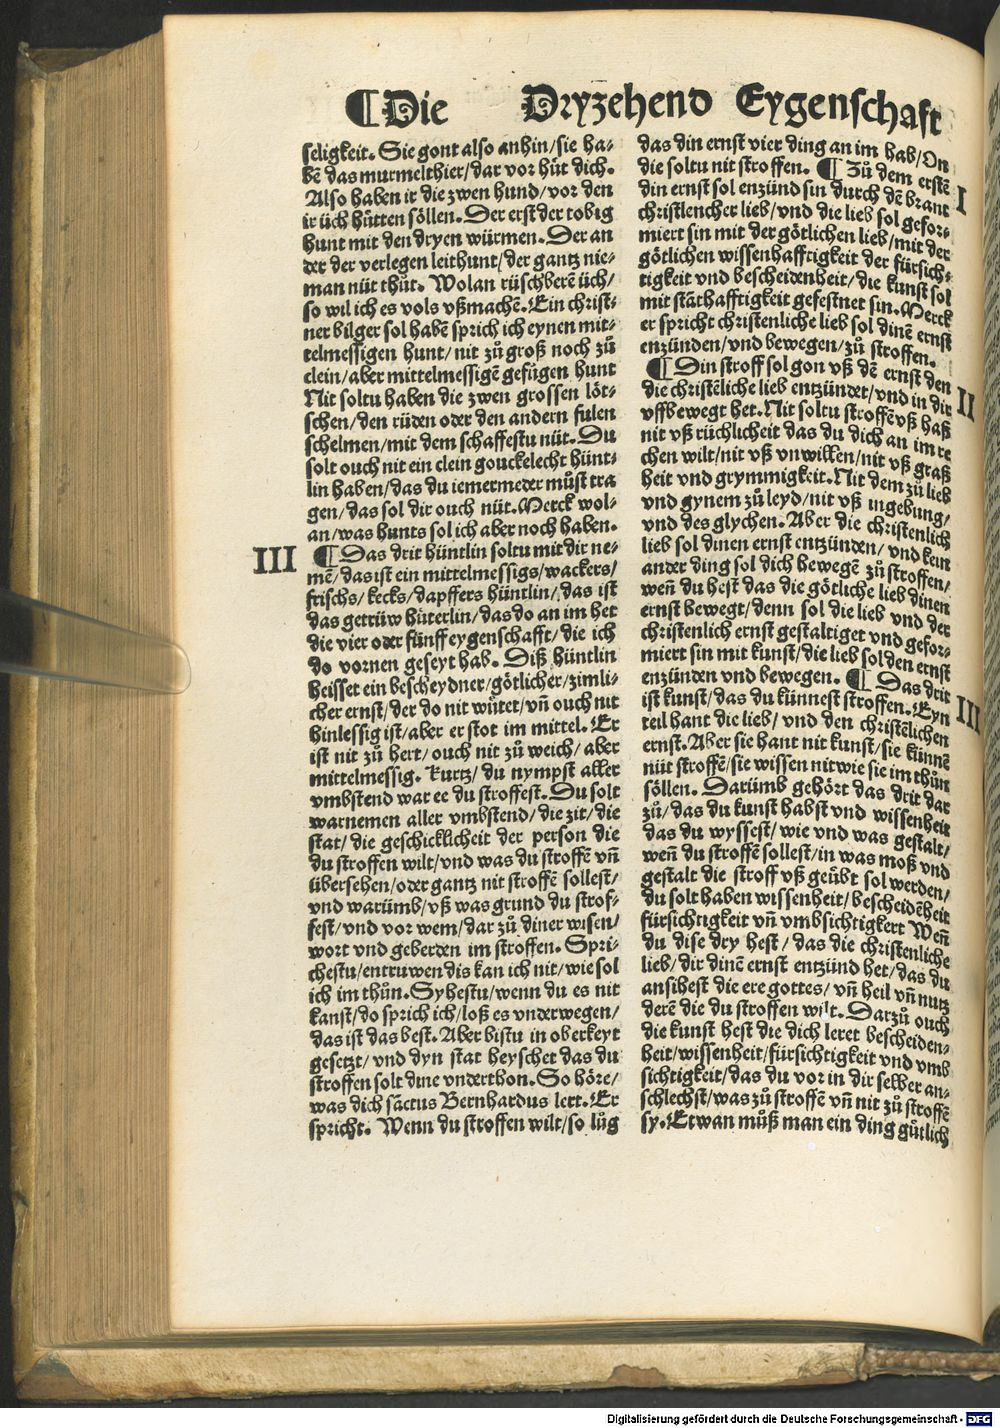 ¶Die Dryzehend Eygenschafft
seligkeit. Sie gont also anhin/sie ha⸗
bē das murmelthier/dar vor hůt dich.
Also haben ir die zwen hund/vor den
ir üch hůtten söllen. Der erst der tobig
hunt mit den dryen würmen. Der an
der der verlegen leithunt/der gantz nie⸗
man nüt thůt. Wolan rüschberē üch/
so wil ich es vols vßmachē. Ein christ⸗
ner bilger sol habē sprich ich eynen mit⸗
telmessigen hunt/nit zů groß noch zů
clein/aber mittelmessigē gefůgen hunt
Nit soltu haben die zwen grossen löt⸗
schen/den rüden oder den andern fulen
schelmen/mit dem schaffestu nüt. Du
solt ouch nit ein clein gouckelecht hünt⸗
lin haben/das du iemermeder můst tra
gen/das sol dir ouch nüt. Merck wol⸗
an/was hunts sol ich aber noch haben.
III
¶ Das drit hüntlin soltu mit dir ne⸗
mē/das ist ein mittelmessigs/wackers/
frischs/kecks/dapffers hüntlin/das ist
das getrüw hůterlin/das do an im het
die vier oder fünff eygenschafft/die ich
do vornen geseyt hab. Diß hüntlin
heisset ein bescheydner/götlicher/zimli⸗
cher ernst/der do nit wůtet/vn̄ ouch nit
hinlessig ist/aber er stot im mittel. Er
ist nit zů hert/ouch nit zů weich/aber
mittelmessig. Kurtz/du nympst aller
vmbstend war ee du stroffest. Du solt
warnemen aller vmbstend/die zit/die
stat/die geschicklicheit der person die
du stroffen wilt/vnd was du stroffē vn̄
übersehen/oder gantz nit stroffē sollest/
vnd warumb/vß was grund du strof⸗
fest/vnd vor wem/dar zů diner wisen/
wort vnd geberden im stroffen. Spri⸗
chestu/entruwen dis kan ich nit/wie sol
ich im thůn. Syhestu/wenn du es nit
kanst/do sprich ich/loß es vnderwegen/
das ist das best. Aber bistu in oberkeyt
gesetzt/vnd dyn stat heyschet das du
stroffen solt dine vnderthon. So höre/
was dich sāctus Bernhardus lert. Er
spricht. Wenn du stroffen wilt/so lůg
das din ernst vier ding an im hab/On
die soltu nit stroffen. ¶ Zů dem erstē
I
din ernst sol enzünd sin durch dē brant
christlencher lieb/vnd die lieb sol gefor⸗
miert sin mit der götlichen lieb/mit der
götlichen wissenhafftigkeit der fürsich⸗
tigkeit vnd bescheidenheit/die kunst sol
mit stāthafftigkeit gefestnet sin. Merck
er spricht christenliche lieb sol dinē ernst
enzünden/vnd bewegen/zů stroffen.
¶ Din stroff sol gon vß dē ernst den
II
die christēliche lieb entzündet/vnd in dir
vffbewegt het. Nit soltu stroffē vß haß
nit vß rüchlicheit das du dich an im re
chen wilt/nit vß vnwillen/nit vß graß
heit vnd grymmigkeit. Nit dem zů lieb
vnd gynem zů leyd/nit vß ingebung/
vnd des glychen. Aber die christenlich
lieb sol dinen ernst entzünden/vnd kein
ander ding sol dich bewegē zů stroffen/
wen̄ du hest das die götliche lieb dinen
ernst bewegt/denn sol die lieb vnd der
christenlich ernst gestaltiget vnd gefor⸗
miert sin mit kunst/die lieb sol den ernst
enzünden vnd bewegen. ¶ Das drit
III
ist kunst/das du künnest stroffen. Eyn
teil hant die lieb/vnd den christēlichen
ernst. Aber sie hant nit kunst/sie künnē
nüt stroffē/sie wissen nit wie sie im thůn
söllen. Darumb gehört das drit dar
zů/das du kunst habst vnd wissenheit
das du wyssest/wie vnd was gestalt/
wen̄ du stroffē sollest/in was moß vnd
gestalt die stroff vß geübt sol werden/
du solt haben wissenheit/bescheidēheit
fürsichtigkeit vn̄ vmbsichtigkert Wen̄
du dise dry hest/das die christenliche
lieb/dir dinē ernst entzünd het/das du
ansihest die ere gottes/vn̄ heil vn̄ nutz
derē die du stroffen wilt. Darzů ouch
die kunst hest die dich leret bescheiden⸗
heit/wissenheit/fürsichtigkeit vnd vmb
sichtigkeit/das du vor in dir selber an⸗
schlechst/was zů stroffē vn̄ nit zů stroffē
sy. Etwan můß man ein ding gůtlich
Digitalisierung gefördert durch die Deutsche Forschungsgemeinschaft - DFG